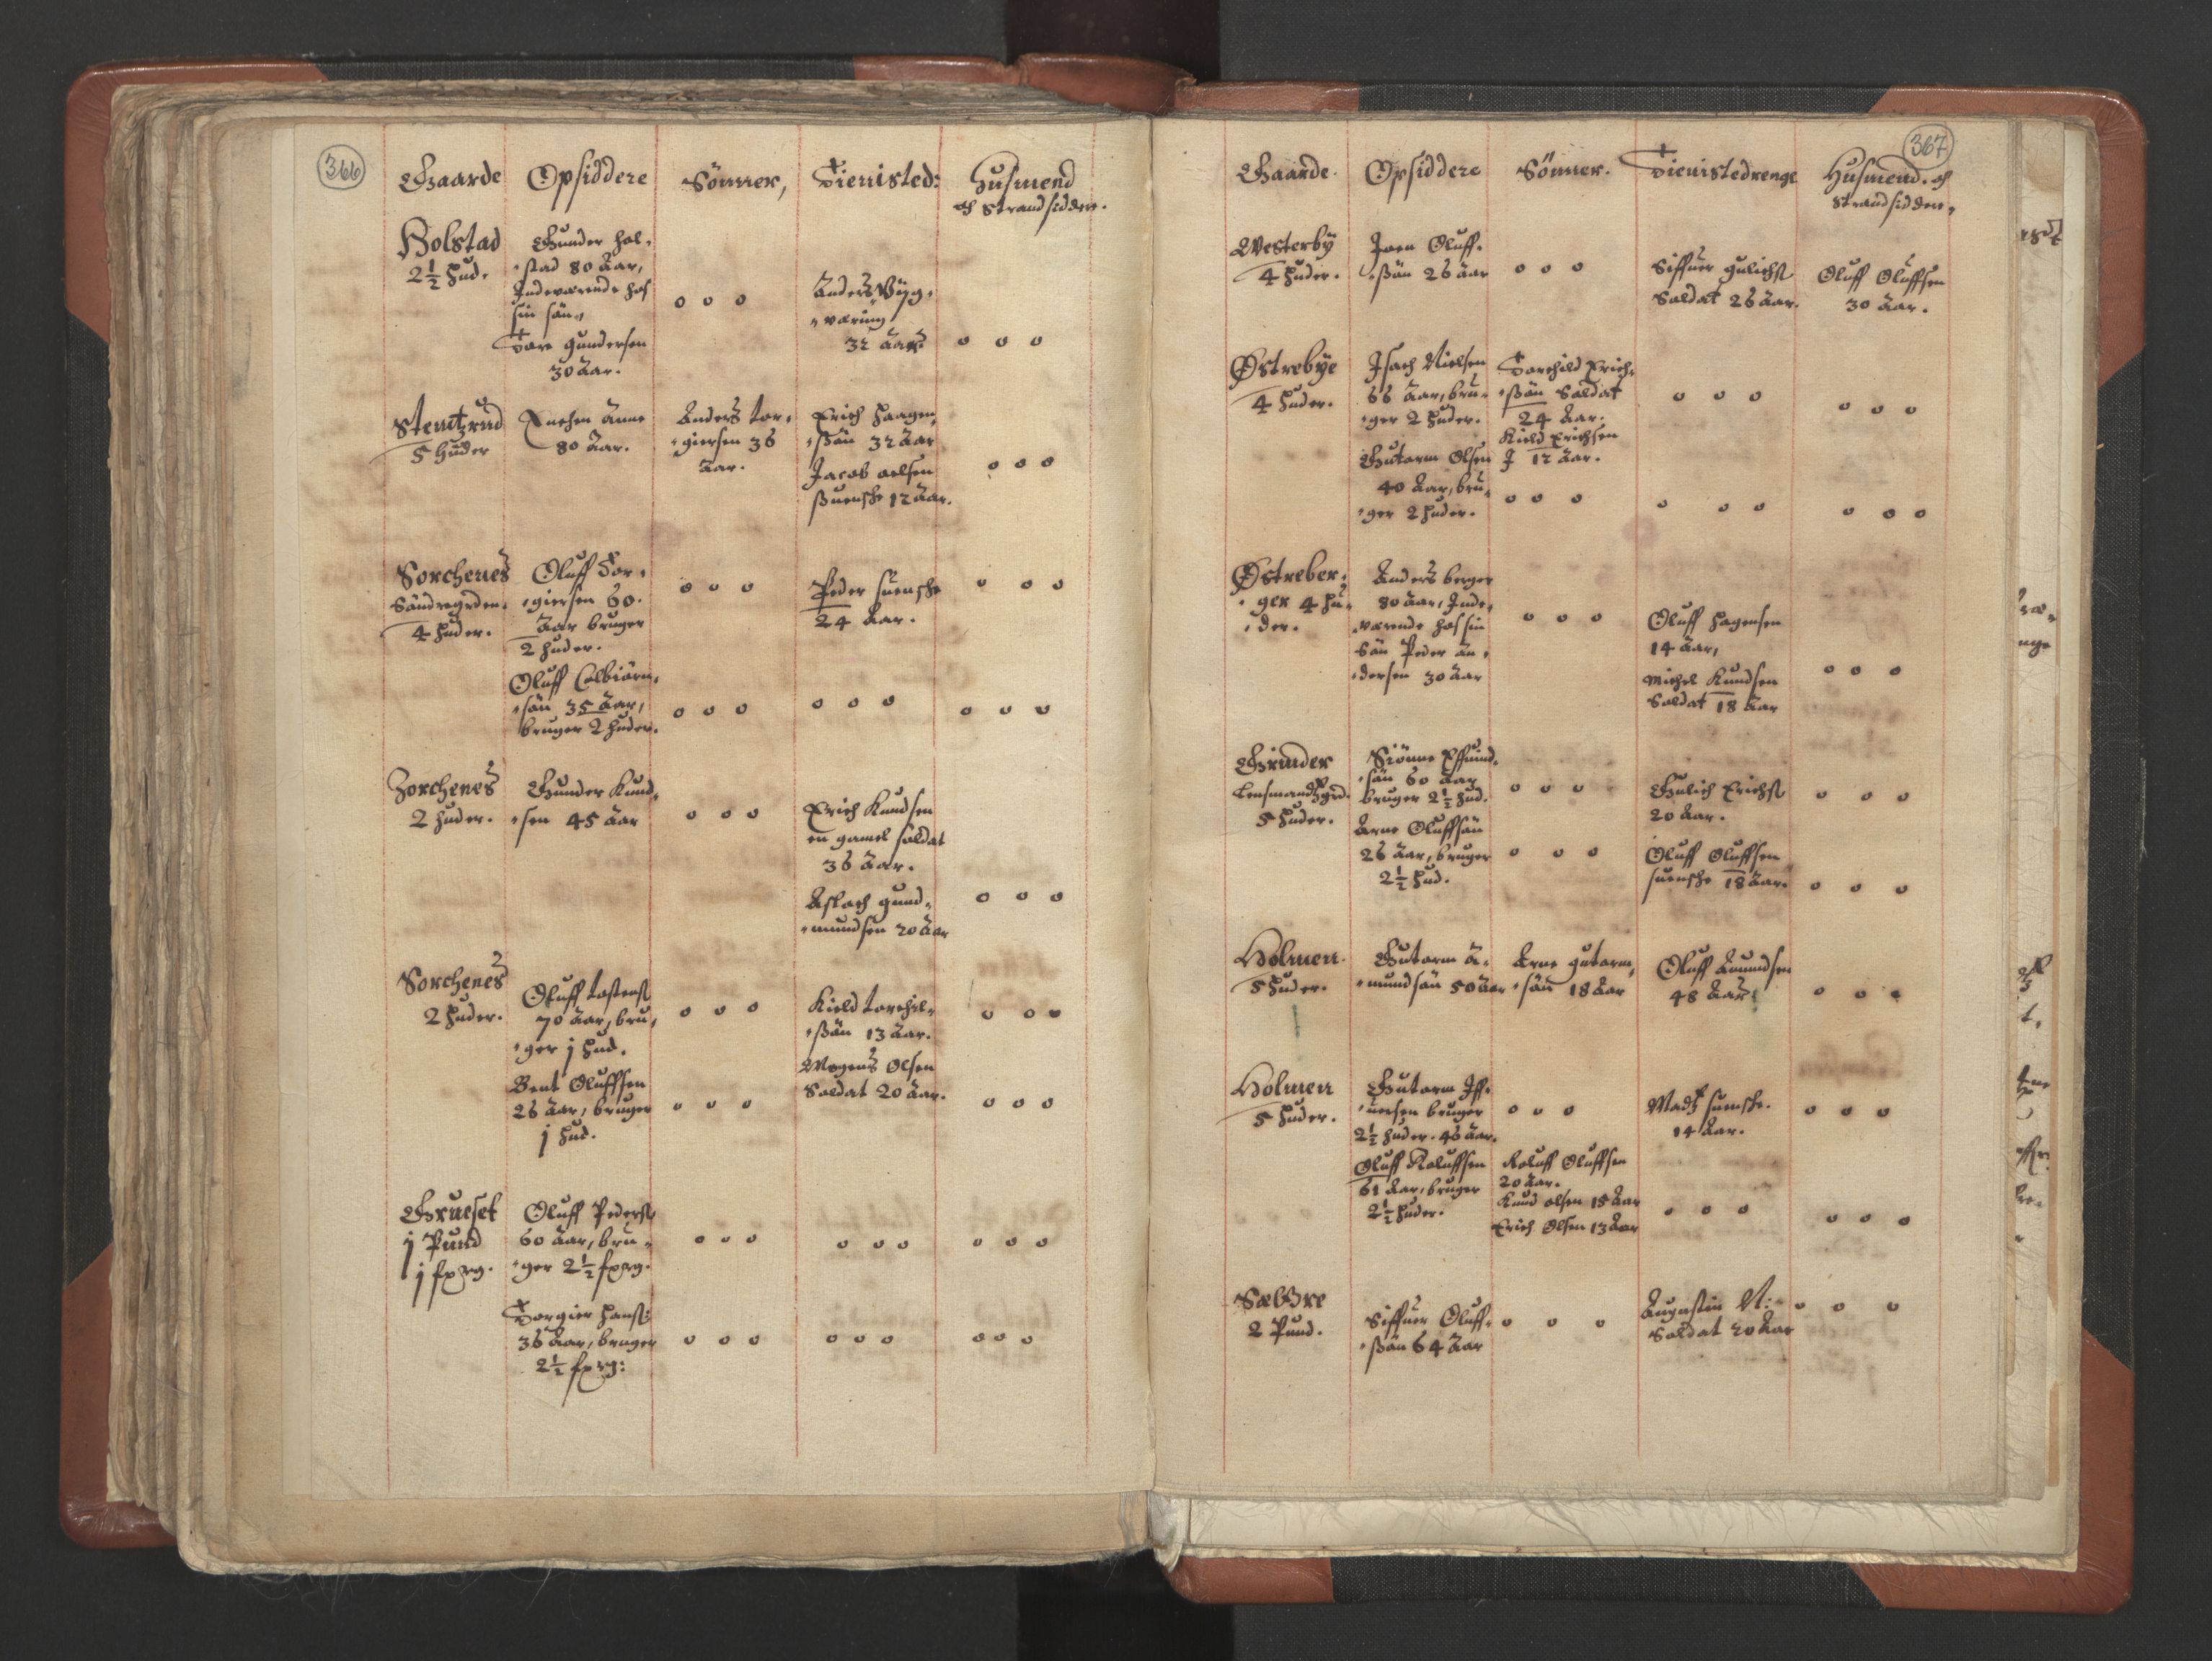 366
Gaarde Opsiddere Sönner, Tienisted: Husmend
och Strandsidder.
Holstad
2½ hud.
Gunder hol-
stad 80 Aar,
Indverende hos
sin sön,
Tore gundersen
30 Aar.
o o o
Anders Wÿg-
wæring
32 Aar
o o o
Stemtzrud
5 huder
Enchen Anne
80 Aar.
Anders tor-
giersen 36
Aar.
Erich haagen-
ssön 32 Aar
Jacob oelsen
suensche 12 Aar.
o o o
Sorchenes
Söndregrden.
4 huder.
Oluff Tor-
giersen 60.
Aar bruger
2 huder.
o o o
Peder suensche
24 Aar.
o o o
Oluff Colbiörn-
sön 35 Aar,
bruger 2 huder.
o o o
o o o
o o o
Zorchenes
2 huder.
Gunder Knud-
sen 45 Aar
o o o
Erich Knudsen
en gamel soldat
36 Aar.
Aslach gund-
mundsen 20 Aar
o o o
Sorchenes
2 huder.
Oluff tostens
70 Aar, bru-
ger j hud.
o o o
Kield torchil-
ssön 13 Aar.
o o o
Bent Oluffsen
26 Aar, bruger
j hud.
o o o
Mogens Olsen
Soldat 20 Aar.
o o o
Grueset
j Pund
j fxrg.
Oluff Peders
60 Aar, bru-
ger 2½ fxrg.
o o o
o o o
o o o
Torgier hans:
36 Aar, bruger
2½ fxrg:
o o o
o o o
o o o
367
Gaarde. Opsiddere Sönner. Tienistedrenge Husmend. och
Strandsidder,
Westerby
4 huder.
Joen Oluff-
ssön 26 Aar
o o o
Siffuer gulichs
Soldat 26 Aar.
Oluff Oluffsen
30 Aar.
Østrebye
4 huder.
Isach Nielsen
66 Aar, bru-
ger 2 huder.
Torchild Erich-
ssön Soldat
24 Aar.
Kield Erichsen
J 12 Aar.
o o o
o o o
Gutorm Olsen
40 Aar, bru-
ger 2 huder.
o o o
o o o
o o o
Østreber-
ger 4 hu-
der.
Anders berger
80 Aar, Inde-
værende hos sin
Sön Peder An-
dersen 30 Aar
o o o
Oluff hagensen
14 Aar,
Michel Knudsen
Soldat 18 Aar
o o o
Grinder
Lensmandtzgrd.
5 huder.
Siönne Effuind-
sön 60 Aar
bruger 2½ hud.
o o o
Gulich Erichs
20 Aar.
o o o
Arne Oluffsön
26 Aar, bruger
2½ hud.
o o o
Oluff Oluffsen
suensche 18 Aar.
o o o
Holmen.
5 huder.
Gutorm A-
mundsön 50 Aar
Arne gutorm-
sön 18 Aar
Oluff Amundsen
48 Aar
o o o
Holmen
5 huder.
Gutorm Iff-
uersen bruger
2½ huder. 46 Aar.
o o o
Madtz suensche.
14 Aar.
o o o
Oluff Roluffsen
61 Aar, bruger
2½ huder.
Roluff Oluffsen
20 Aar.
Knud olsen 15 Aar
Erich Olsen 13 Aar
o o o
o o o
Sæbre
2 Pund.
Siffuer Oluff-
ssön 64 Aar
o o o
Augustin N:
Soldat 20 Aar
o o o